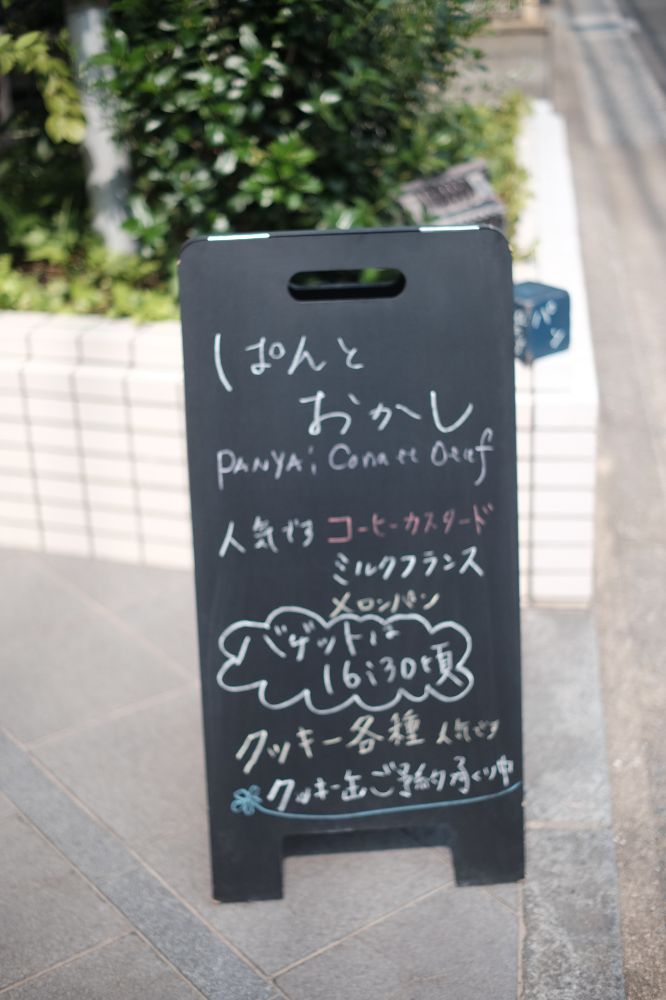 ぱんと
おかし
PANYA;
人気です コーヒーカスタード
ミルクフランス
メロンパン
バゲットは
16:30頃
クッキー各種 人気です
クッキー缶ご予約承り中
パン